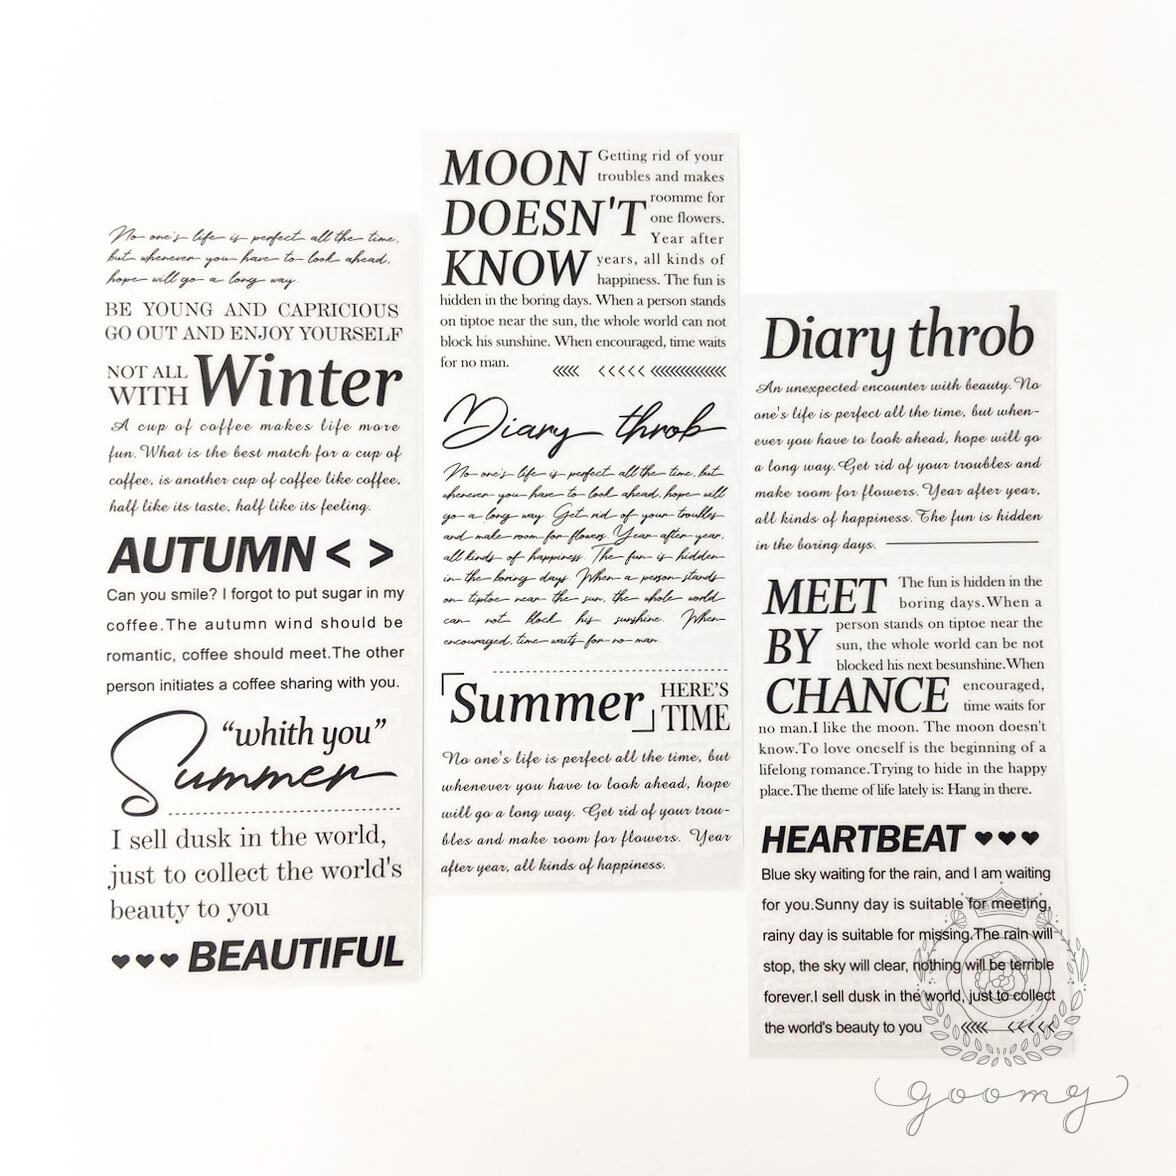 No one's life is perfect all the time,
but whenever you have to look ahead,
hope will go a long way.
BE YOUNG AND CAPRICIOUS
GO OUT AND ENJOY YOURSELF
NOT ALL
WITH Winter
A cup of coffee makes life more
fun.What is the best match for a cup of
coffee, is another cup of coffee like coffee,
half like its taste, half like its feeling.
AUTUMN < >
Can you smile? I forgot to put sugar in my
coffee.The autumn wind should be
romantic, coffee should meet.The other
person initiates a coffee sharing with you.
"whith you"
Summer
I sell dusk in the world,
just to collect the world's
beauty to you
♥♥♥ BEAUTIFUL
MOON Getting rid of your
troubles and makes
DOESN'T roomme for
one flowers.
Year after
KNOW years, all kinds of
happiness. The fun is
hidden in the boring days. When a person stands
on tiptoe near the sun, the whole world can not
block his sunshine. When encouraged, time waits
for no man.
Diary throb
No one's life is perfect all the time, but
whenever you have to look ahead, hope will
go a long way. Get rid of your troubles
and make room for flowers. Year after year,
all kinds of happiness. The fun is hidden
in the boring days. When a person stands
on tiptoe near the sun, the whole world
can not block his sunshine. When
encouraged, time waits for no man.
Summer HERE'S
TIME
No one's life is perfect all the time, but
whenever you have to look ahead, hope
will go a long way. Get rid of your trou-
bles and make room for flowers. Year
after year, all kinds of happiness.
Diary throb
An unexpected encounter with beauty. No
one's life is perfect all the time, but when-
ever you have to look ahead, hope will go
a long way. Get rid of your troubles and
make room for flowers. Year after year,
all kinds of happiness. The fun is hidden
in the boring days.
MEET The fun is hidden in the
boring days.When a
BY person stands on tiptoe near the
sun, the whole world can be not
blocked his next besunshine.When
CHANCE encouraged,
time waits for
no man.I like the moon. The moon doesn't
know.To love oneself is the beginning of a
lifelong romance.Trying to hide in the happy
place.The theme of life lately is: Hang in there.
HEARTBEAT ♥♥♥
Blue sky waiting for the rain, and I am waiting
for you.Sunny day is suitable for meeting,
rainy day is suitable for missing.The rain will
stop, the sky will clear, nothing will be terrible
forever.I sell dusk in the world, just to collect
the world's beauty to you
goomy